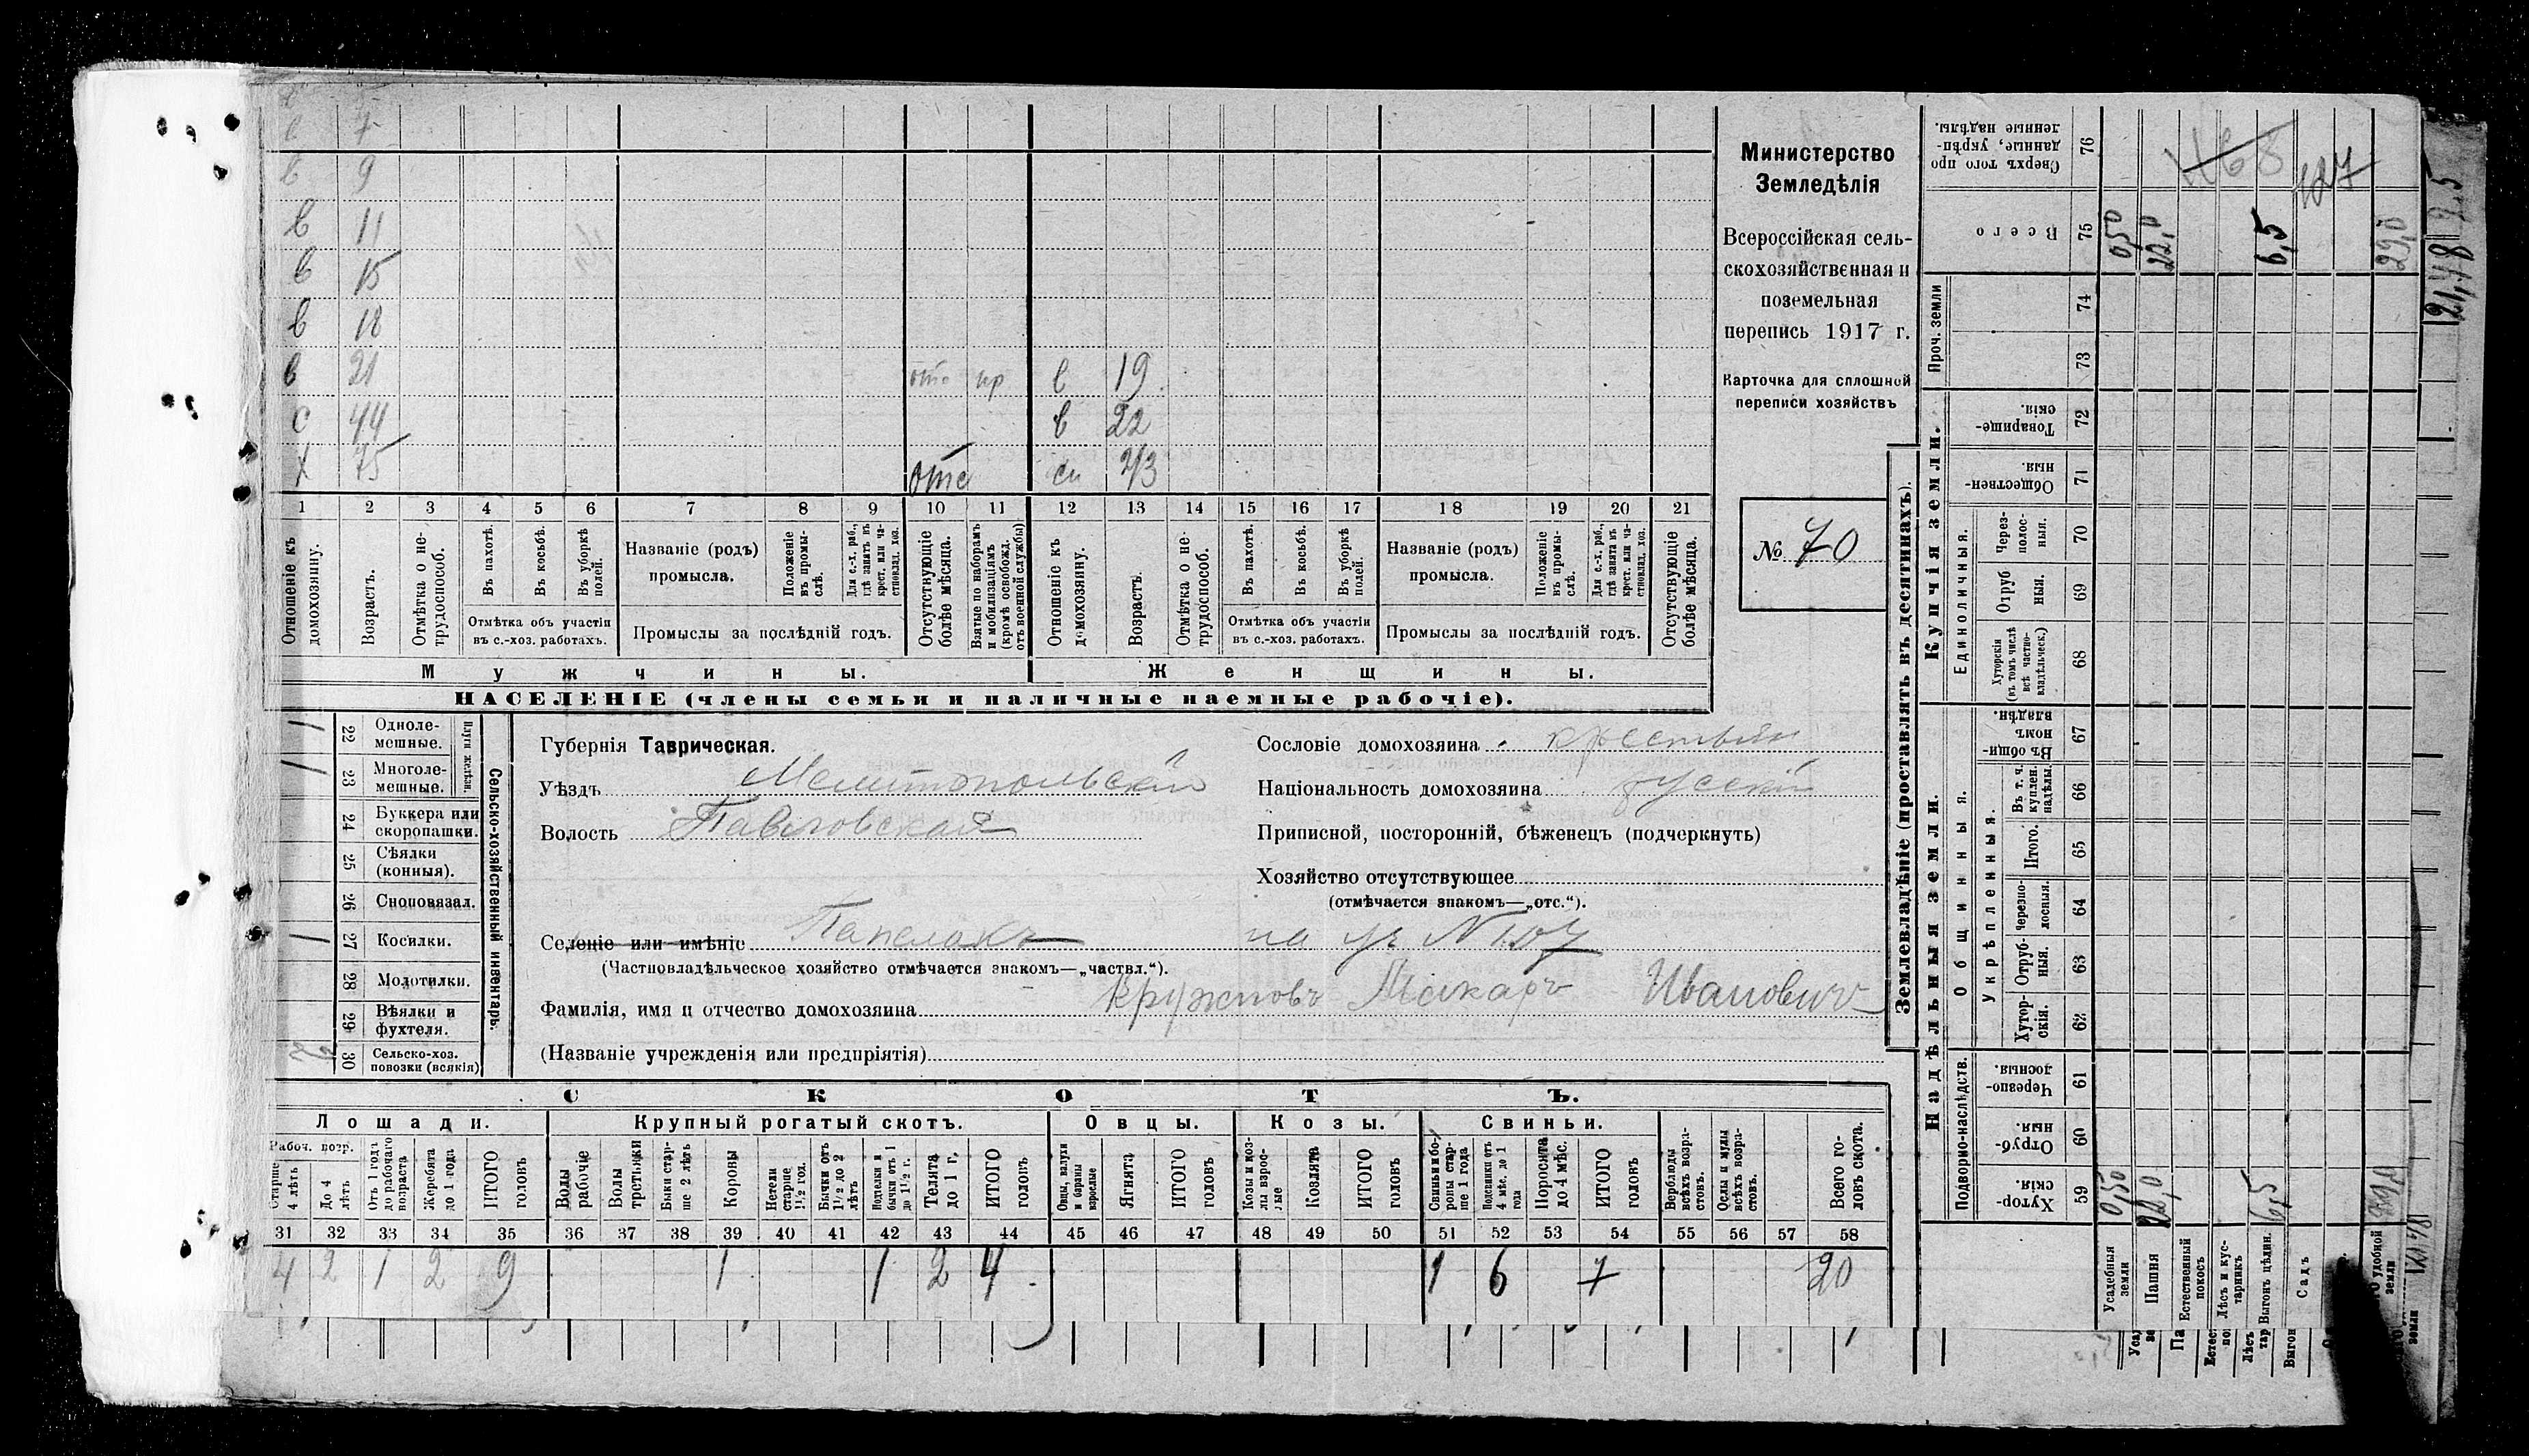 в 7
в 9
в 11
в 15
в 18
в 21 отс пр в 19
с 44 в 22
х 75 отс сн 43
1 2 3 4 5 6 7 8 9 10 11 12 13 14 15 16 17 18 19 20 21
Отношеніе къ домохозяину.
Возрастъ.
Отмѣтка о нетрудоспособ.
Въ пахотѣ.
Въ косьбѣ.
Въ уборкѣ полей.
Отмѣтка объ участіи въ с.-хоз. работахъ.
Названіе (родъ) промысла.
Положеніе въ промыслѣ.
Для с.-х. раб., гдѣ занятъ въ крест. или частновлад. хоз.
Промыслы за послѣдній годъ.
Отсутствующіе болѣе мѣсяца.
Взятые по наборамъ и мобилизаціямъ (кромѣ освобожд. отъ военной службы)
Отношеніе къ домохозяину.
Возрастъ.
Отмѣтка о нетрудоспособ.
Въ пахотѣ.
Въ косьбѣ.
Въ уборкѣ полей.
Отмѣтка объ участіи въ с.-хоз. работахъ.
Названіе (родъ) промысла.
Положеніе въ промыслѣ.
Для с.-х. раб., гдѣ занята въ крест. или частновлад. хоз.
Промыслы за послѣдній годъ.
Отсутствующіе болѣе мѣсяца.
Мужчины. Женщины.
НАСЕЛЕНІЕ (члены семьи и наличные наемные рабочіе).
Министерство
Земледѣлія
Всероссійская сель-
скохозяйственная и
поземельная
перепись 1917 г.
Карточка для сплошной
переписи хозяйствъ
№ 70
1 22 Одноле-мешные.
1 23 Многоле-мешные.
Плуги желѣзн.
24 Буккера или скоропашки.
25 Сѣялки (конныя).
26 Сноповязал.
1 27 Косилки.
28 Молотилки.
29 Вѣялки и фухтеля.
30 Сельско-хоз. повозки (всякія)
Сельско-хозяйственный инвентарь.
Губернія Таврическая.
Уѣздъ Мелитопольскій
Волость Павловская
Селеніе или имѣніе на уч N 107
(Частновладѣльческое хозяйство отмѣчается знакомъ—„частвл.“).
Фамилія, имя и отчество домохозяина Кружновъ Макаръ Ивановичъ
(Названіе учрежденія или предпріятія)
Сословіе домохозяина крестьян
Національность домохозяина русскій
Приписной, посторонній, бѣженецъ (подчеркнуть)
Хозяйство отсутствующее
(отмѣчается знакомъ—„отс.“).
СКОТЪ.
Лошади. Крупный рогатый скотъ. Овцы. Козы. Свиньи.
Рабоч. возр.
Старше 4 лѣтъ
До 4 лѣтъ
Отъ 1 года до рабочаго возраста
Жеребята до 1 года
ИТОГО головъ
Волы рабочіе
Волы третьяки
Быки старше 2 лѣтъ
Коровы
Нетели старше 1½ год.
Бычки отъ 1½ до 2 лѣтъ
Подтелки и бычки отъ 1 до 1½ г.
Телята до 1 г.
ИТОГО головъ
Овцы, валухи и бараны взрослые
Ягнята
ИТОГО головъ
Козы и козлы взрослые
Козлята
ИТОГО головъ
Свиньи боровы старше 1 года
Подсвинки отъ 4 мѣс. до 1 года
Поросята до 4 мѣс.
ИТОГО головъ
Верблюды всѣхъ возрастовъ.
Ослы и мулы всѣхъ возрастовъ.
Всего головъ скота.
31 32 33 34 35 36 37 38 39 40 41 42 43 44 45 46 47 48 49 50 51 52 53 54 55 56 57 58
4 2 1 2 9 1 1 2 4 1 6 7 20
Землевладѣніе (проставлять въ десятинахъ).
Купчія земли.
Надѣльныя земли.
Сверхъ того проданные, укрѣпленные надѣлы. 76
Всего 75 0,50 22,0 6,5 29,0
Проч. земли 74 73
Товарищескія. 72
Общественныя 71
Единоличныя.
Черезполосныя. 70
Отрубныя. 69
Хуторскія (въ томъ числѣ всѣ частновладѣльческ.) 68
Въ общинномъ владѣн. 67
Общинныя.
Укрѣпленныя.
Въ т. ч. куплен. надѣлы. 66
Итого. 65
черезполосныя. 64
Отрубныя. 63
Хуторскія. 62
Подворно-наслѣдств.
Черезполосныя. 61
Отрубныя. 60
Хуторскія. 59 0,50 22,0 6,5
Усадебныя земли
Пашня
Естественный покосъ
Лѣсъ и кустарникъ
Выгонъ цѣлин.
Садъ
удобной земли
127